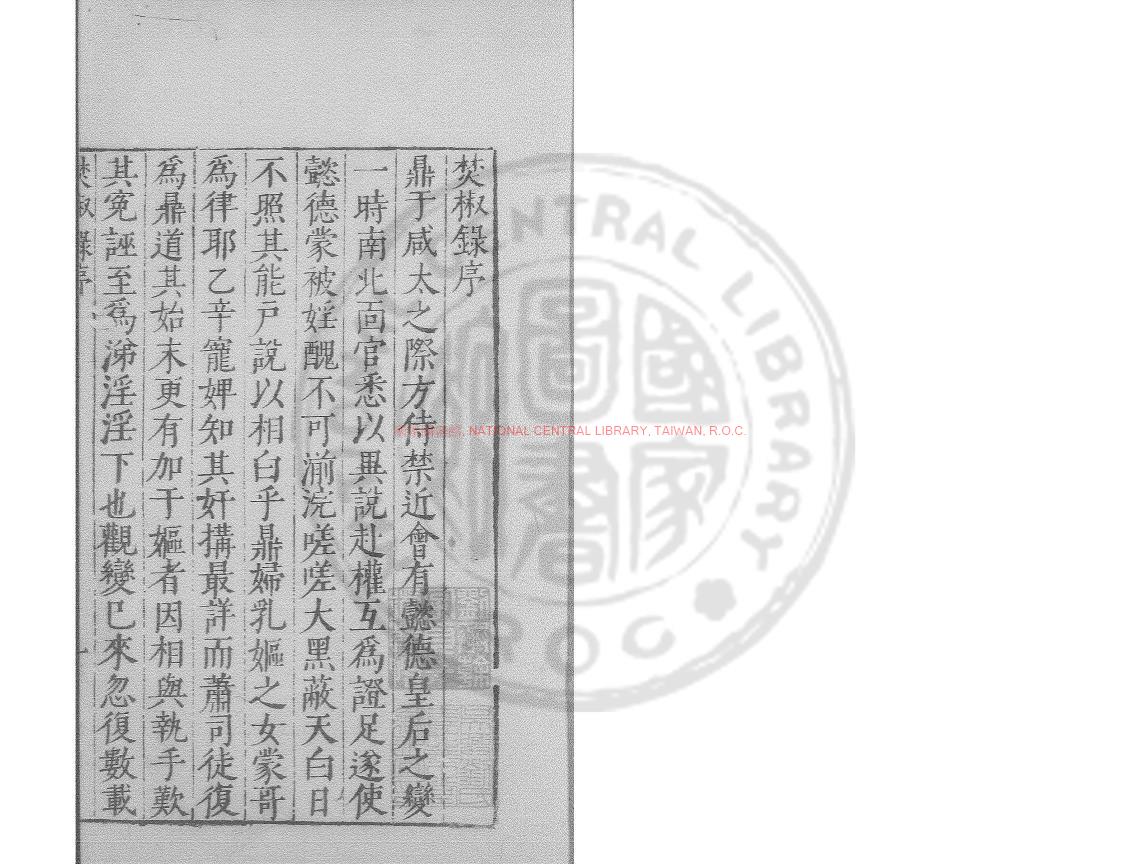 焚椒錄序
鼎于咸太之際方侍禁近會有懿德皇后之變
一時南北面官悉以異說赴權互爲證足遂使
懿德蒙被婬醜不可湔浣嗟嗟大黑蔽天白日
不照其能戶說以相白乎鼎婦乳嫗之女蒙哥
爲律耶乙辛寵婢知其奸搆最詳而蕭司徒復
爲鼎道其始末更有加于嫗者因相與執手歎
其寃誣至爲涕淫淫下也觀變巳來忽復數載
焚椒錄序 一
NATIONAL CENTRAL LIBRARY, TAIWAN, R.O.C.
CENTRAL LIBRARY
R O C
國家圖書館